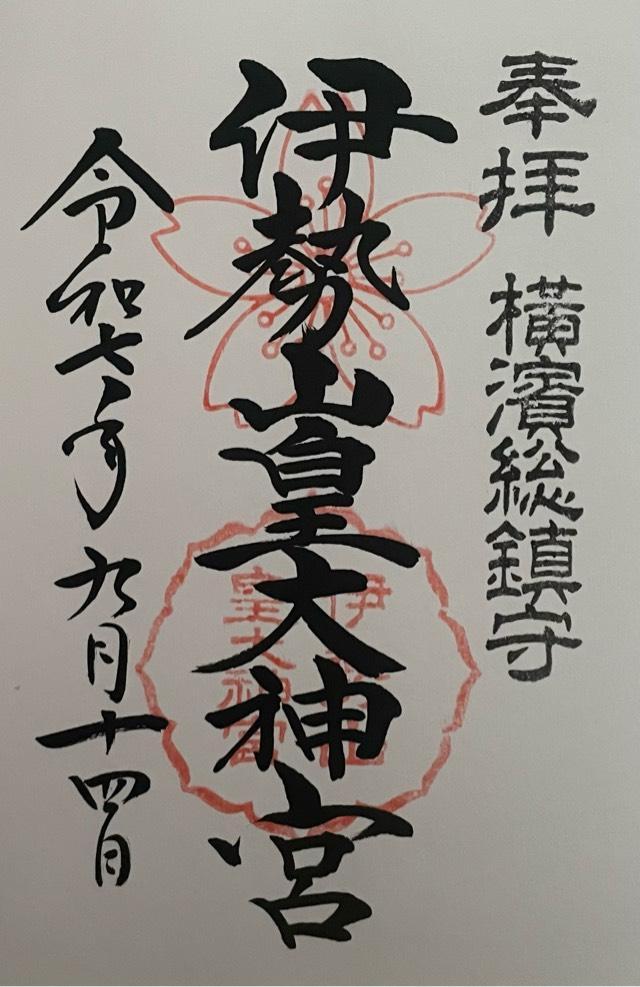 奉拝 横濱総鎮守
伊勢山皇大神宮
令和七年九月十四日
伊勢山
皇大神宮